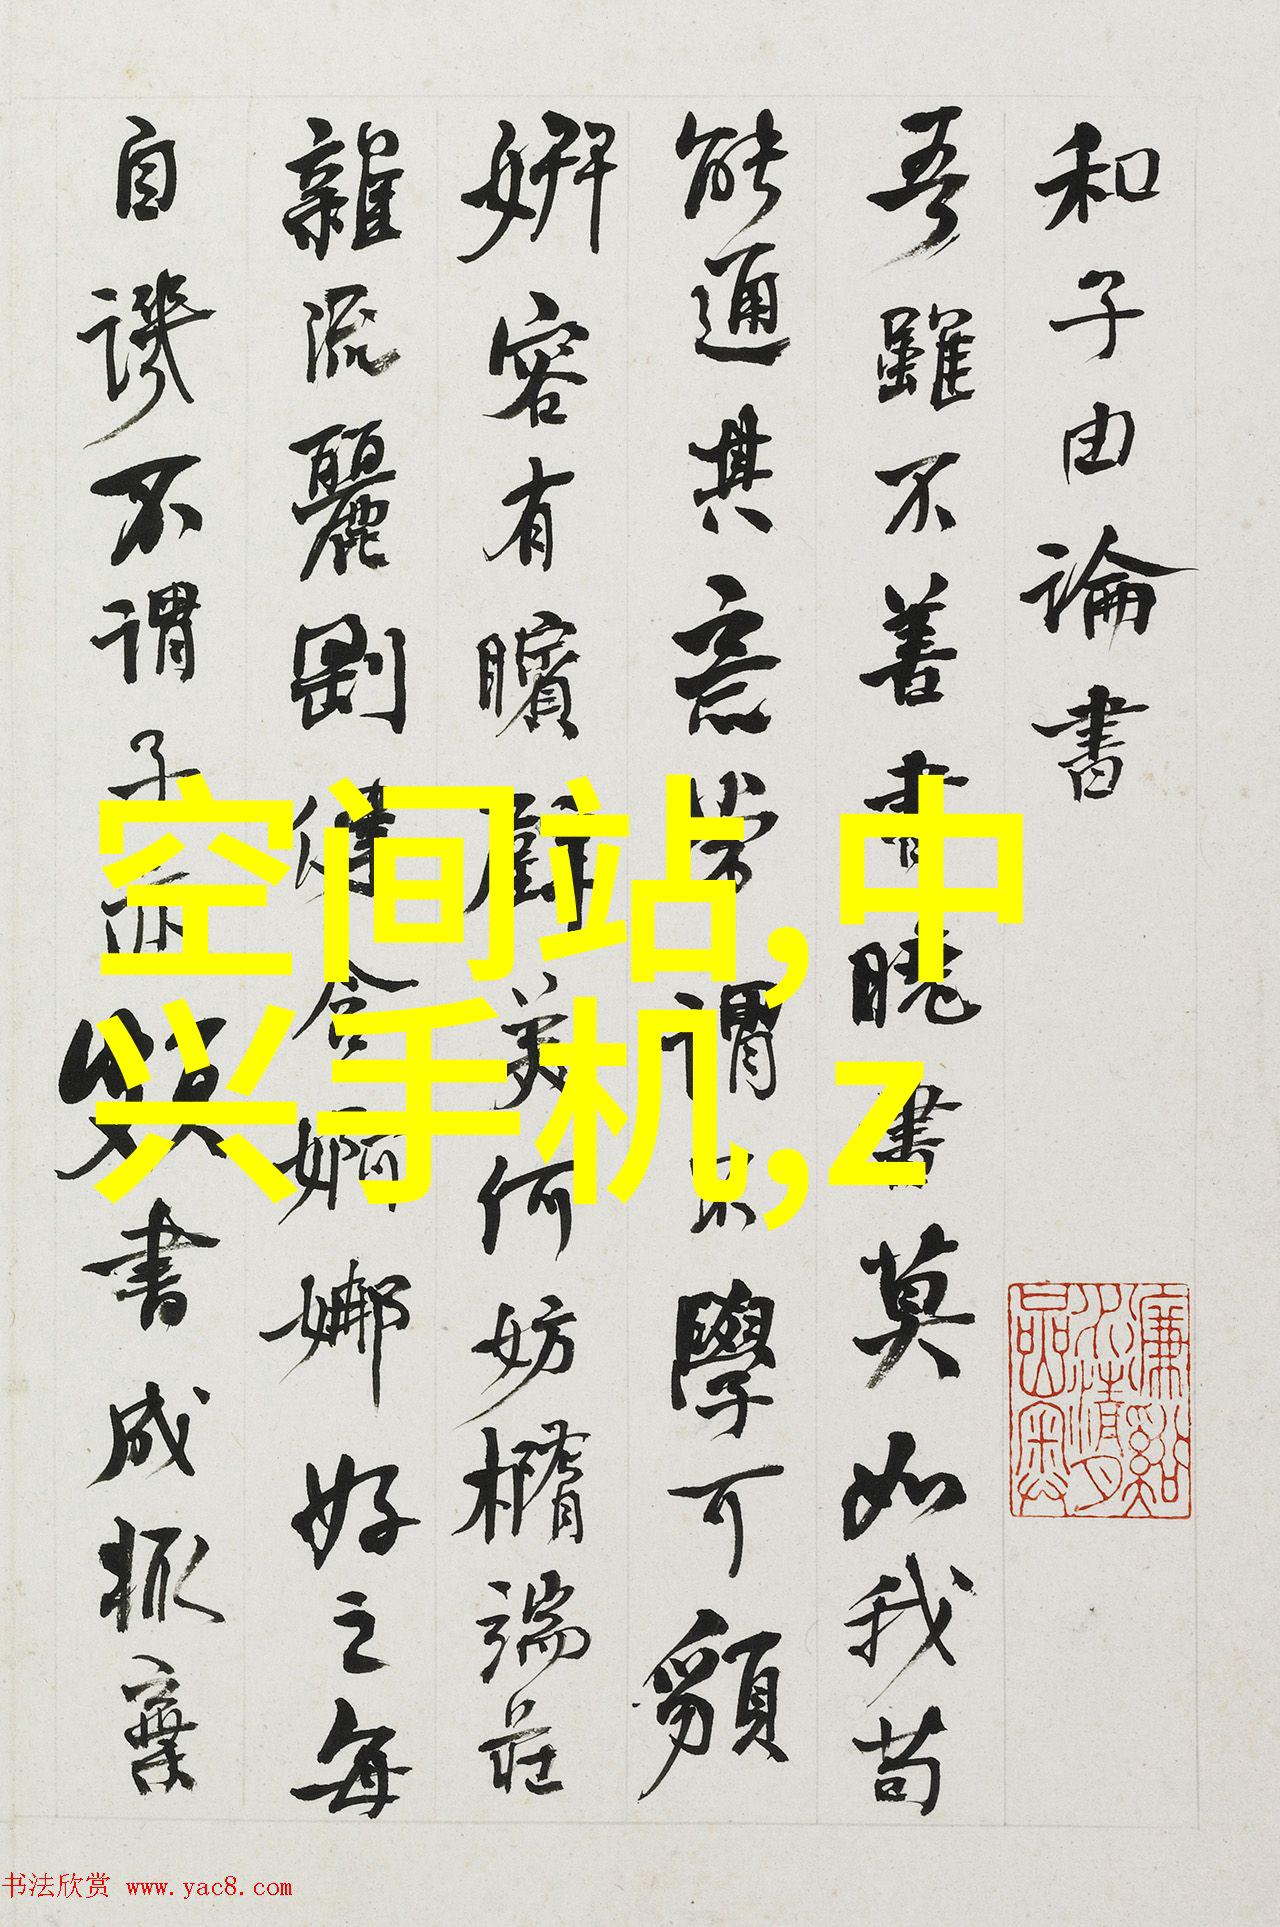 和子由論書
吾雖不善書曉書莫如我苟
能通其意常謂不學可䫉
姸容有矉璧美何妨橢端莊
雜流麗剛健含婀娜好之每
自譏不謂子亦頗書成輒棄
空间站,中
兴手机,z
书法欣赏 www.yac8.com